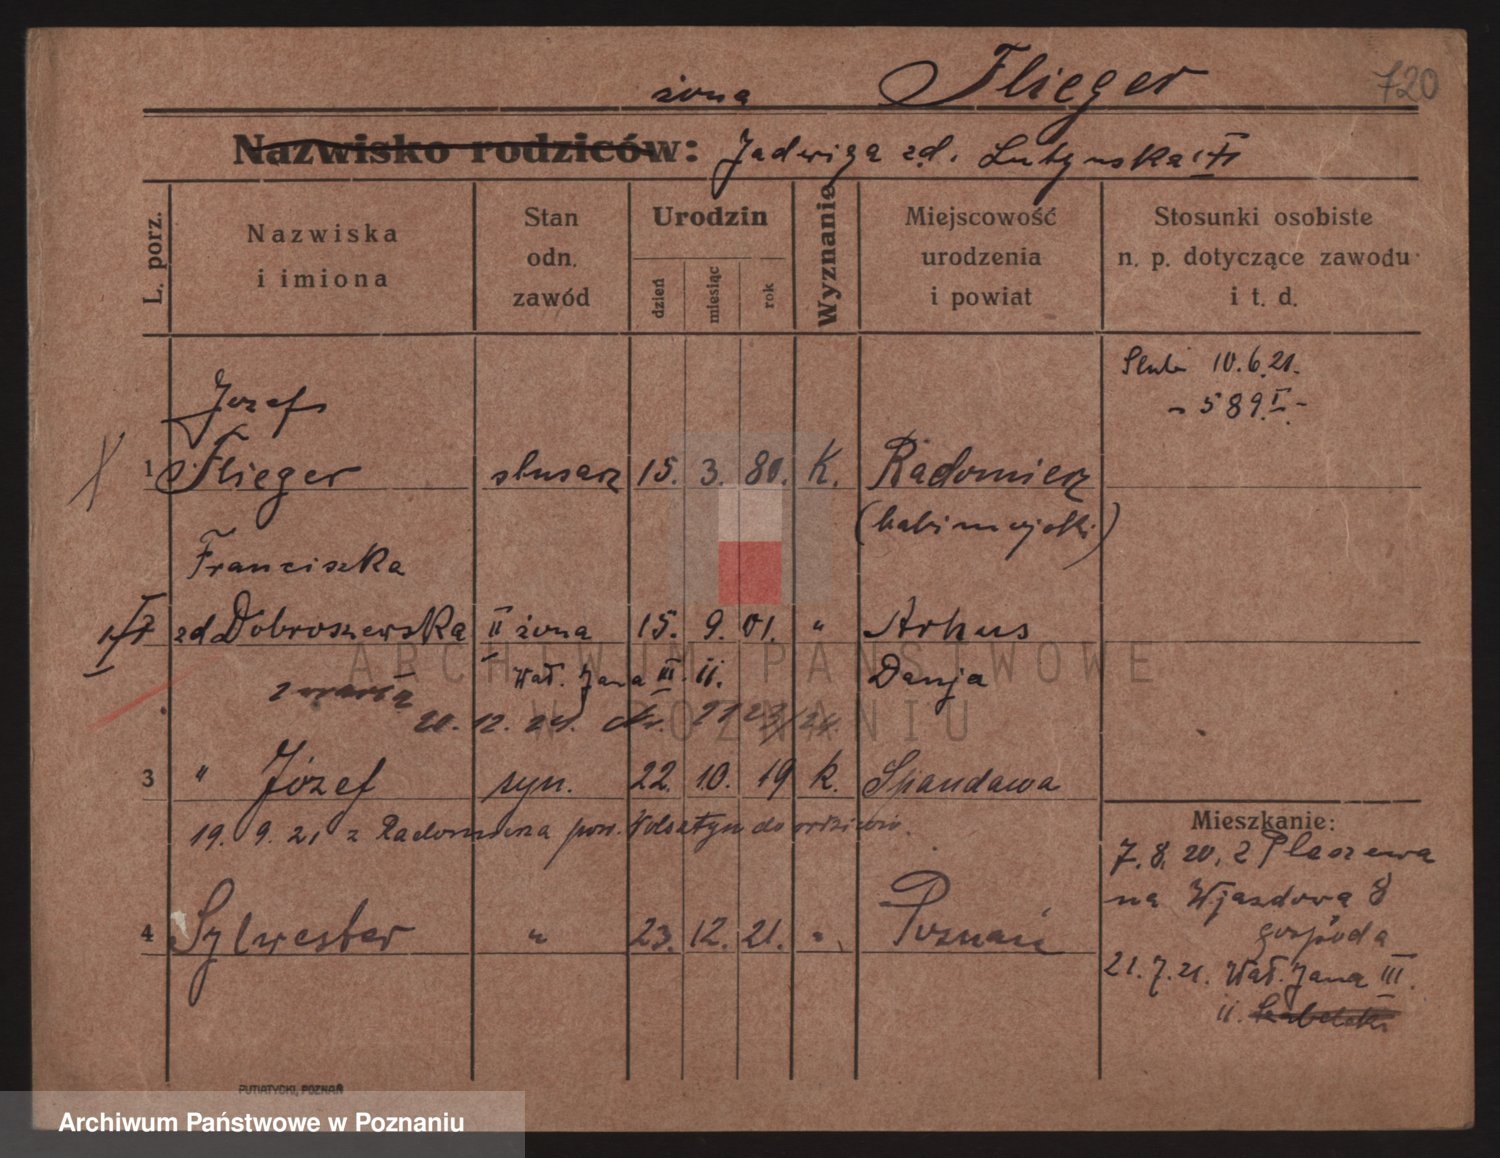 720
żona Flieger
Nazwisko rodziców: Jadwiga zd.
L. porz.
Nazwiska
i imiona
Stan
odn.
zawód
Urodzin
dzień
miesiąc
rok
Wyznanie
Miejscowość
urodzenia
i powiat
Stosunki osobiste
n. p. dotyczące zawodu
i t. d.
10.6.21.
- 589.I. -
Józef
1 Flieger ślusarz 15. 3. 80. K. Radomierz
(babimojski)
Franciszka
zd Dobroszewska II żona 15. 9. 01. " Arhus
Wał. Jana III. 11. Danja
20. 12. 24.
3 " Józef syn. 22. 10. 19 k. Spandawa
19. 9. 21 z Radomierza pow. Wolsztyn do rodziców.
4 Sylwester " 23. 12. 21. " Poznań
Mieszkanie:
7. 8. 20. z Plaszewa
na Wjazdowa 8
gospoda
21. 7. 21. Wał. Jana III.
11.
PUTIATYCKI, POZNAŃ
ARCHIWUM PAŃSTWOWE
W POZNANIU
Archiwum Państwowe w Poznaniu